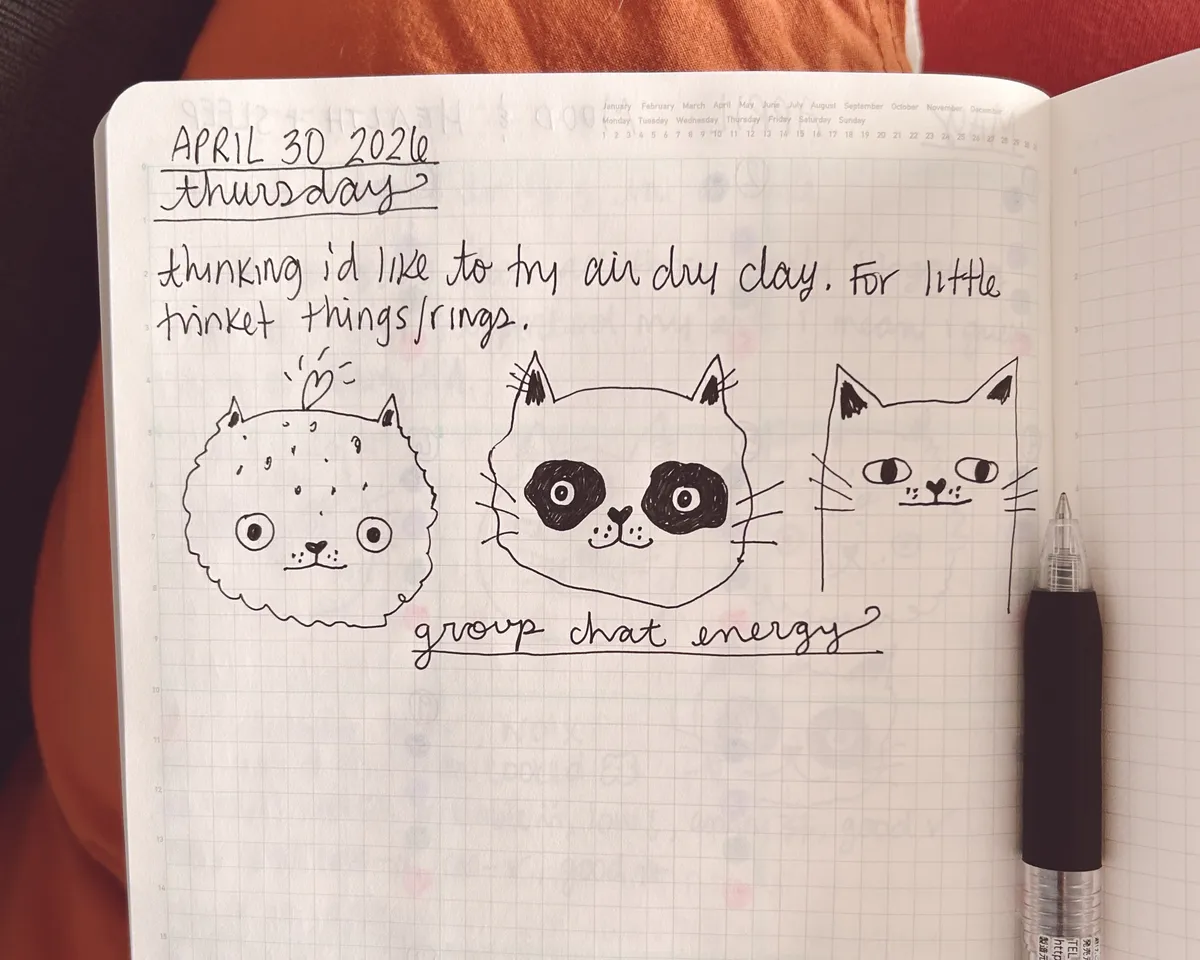 January February March April May June July August September October November December
Monday Tuesday Wednesday Thursday Friday Saturday Sunday
1 2 3 4 5 6 7 8 9 10 11 12 13 14 15 16 17 18 19 20 21 22 23 24 25 26 27 28 29 30 31
APRIL 30 2026
thursday
thinking i'd like to try air dry clay. For little
trinket things/rings.
group chat energy